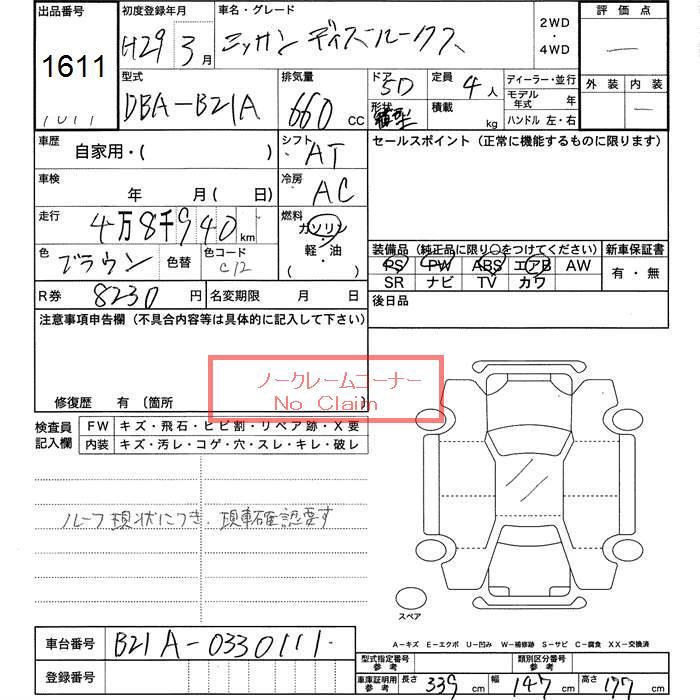 出品番号 初度登録年月 車名・グレード 2WD・4WD 評価点
1611 H29 3月 ニッサン ディズルークス —
型式 排気量 ドア 5D 定員 4人 ディーラー・並行 外装 内装
DBA-B21A 660 CC 形状 箱型 積載 kg モデル年式 年 —
ハンドル 左・右
車歴 自家用・( ) シフト AT セールスポイント(正常に機能するものに限ります)
車検 年 月 (日) 冷房 AC
走行 4万8千940km 燃料 ガソリン・軽・油・( )
色 ブラウン 色替 色コード C12
装備品(純正品に限り〇をつけてください) 新車保証書
PS PW ABS エアB AW 有・無
SR ナビ TV カワ
R券 8230円 名変期限 月 日 後日品
注意事項申告欄(不具合内容等は具体的に記入して下さい)
ノークレームコーナー
No Claim
修復歴 有(箇所 )
検査員記入欄 FW キズ・飛石・ヒビ割・リペア跡・X要
内装 キズ・汚レ・コゲ・穴・スレ・キレ・破レ
ルーフ現状につき、現車確認要す
スペア
A-キズ E-エクボ U-凹み W-補修跡 S-サビ C-腐食 XX-交換済
車台番号 B21A-0330111 型式指定番号 参考 類別区分番号 参考
登録番号 車庫証明用 参考 長さ 339cm 幅 147cm 高さ 177cm